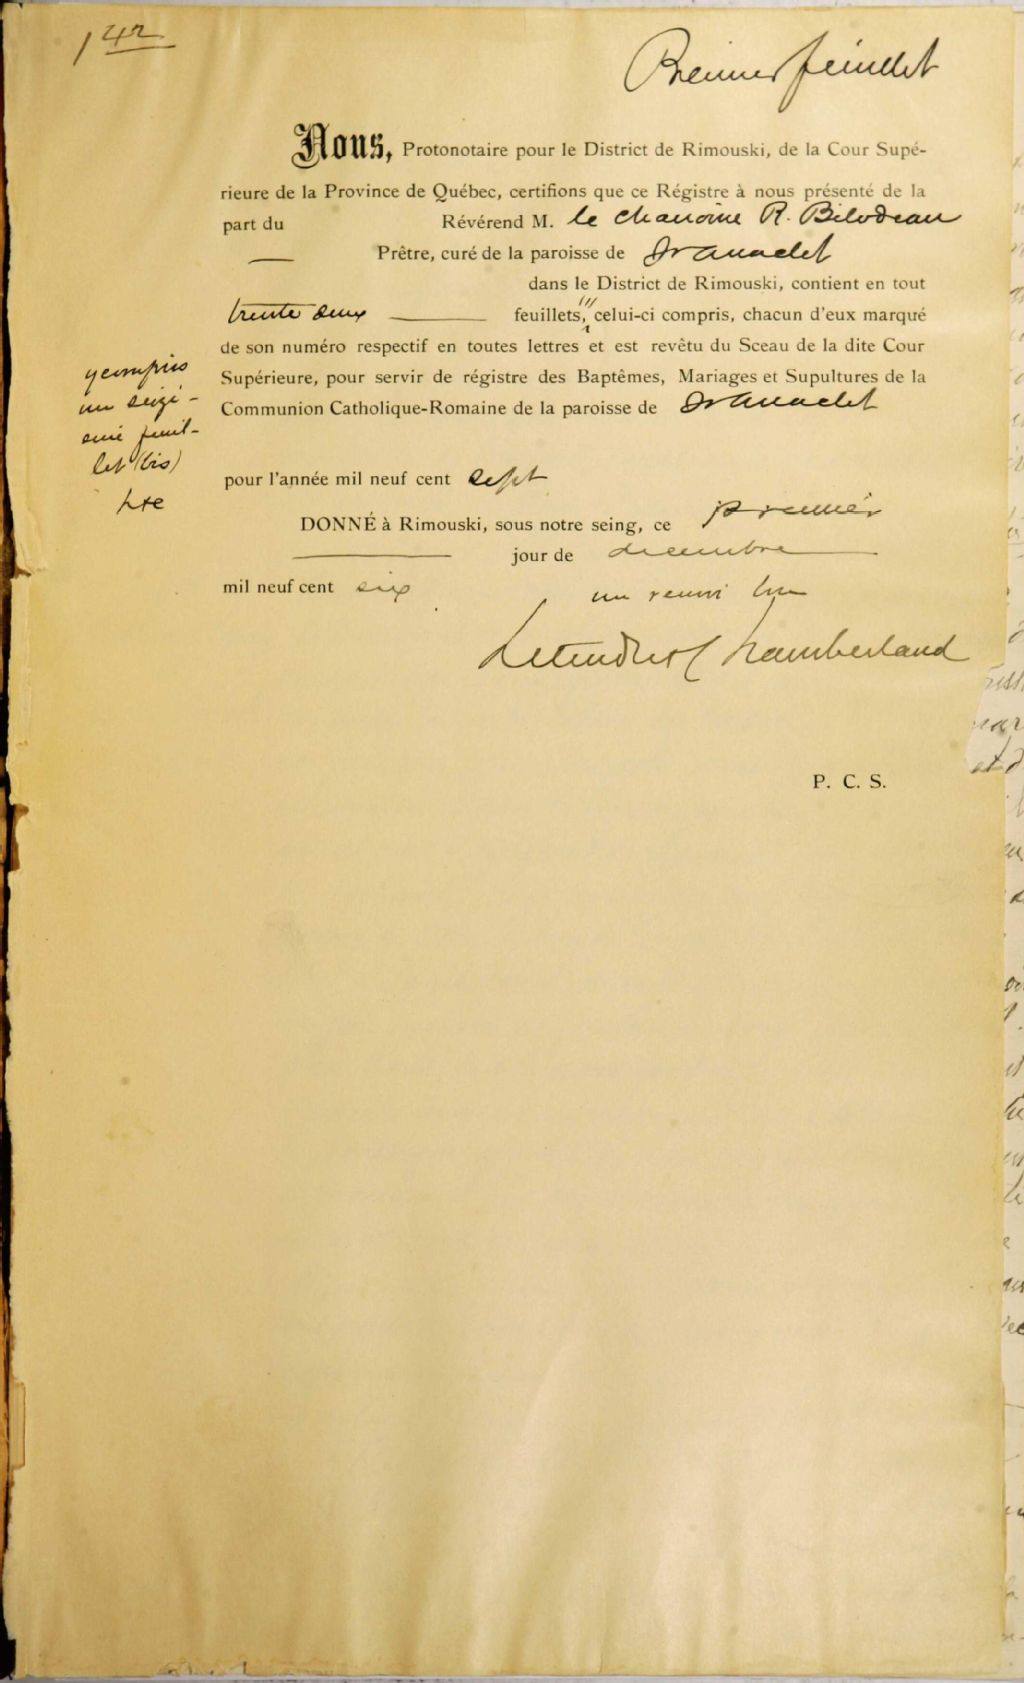 142
Premier feuillet
Nous, Protonotaire pour le District de Rimouski, de la Cour Supé-
rieure de la Province de Québec, certifions que ce Régistre à nous présenté de la
part du Révérend M. le chanoine R. Bilodeau
— Prêtre, curé de la paroisse de St Anaclet
dans le District de Rimouski, contient en tout
trente deux — feuillets, celui-ci compris, chacun d'eux marqué
de son numéro respectif en toutes lettres et est revêtu du Sceau de la dite Cour
Supérieure, pour servir de régistre des Baptêmes, Mariages et Supultures de la
Communion Catholique-Romaine de la paroisse de St Anaclet
y compris
un seizi-
eme feuil-
let (bis)
pour l'année mil neuf cent sept
DONNÉ à Rimouski, sous notre seing, ce premier
— jour de decembre —
mil neuf cent six
un renvoi bon
Letendre & Chamberland
P. C. S.